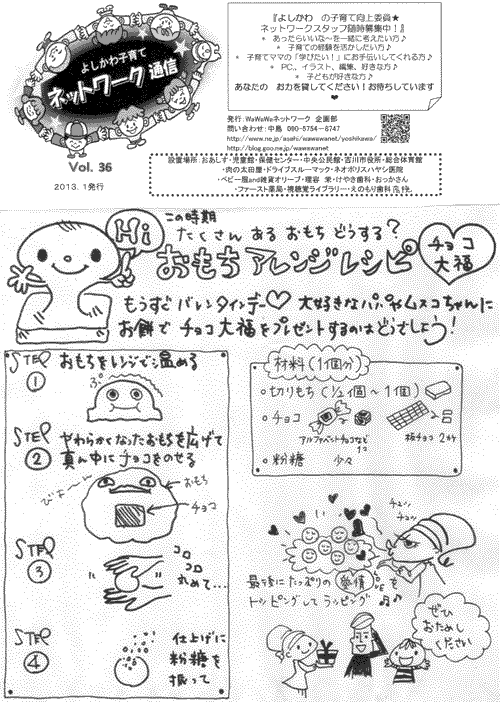 よしかわ子育て
ネットワーク通信
Vol. 36
2013. 1発行
『よしかわ の子育て向上委員★
ネットワークスタッフ随時募集中!』
* あったらいいな~を一緒に考えたい方♪
* 子育ての経験を活かしたい方♪
* 子育てママの「学びたい!」にお手伝いしてくれる方♪
* PC、イラスト、編集、好きな方♪
* 子どもが好きな方♪
あなたの お力を貸してください!お待ちしています
発行:WaWaWaネットワーク 企画部
問い合わせ:中島 090-5754-8747
http://www.ne.jp/asahi/wawawanet/yoshikawa/
http://blog.goo.ne.jp/wawawanet
設置場所:おあしす・児童館・保健センター・中央公民館・吉川市役所・総合体育館
・肉の太田屋・ドライブスルーマック・ネオポリスハヤシ医院
・ベビー服and雑貨オリーブ・理容 栄・けやき歯科・おっかさん
・ファースト薬局・視聴覚ライブラリー・えのもり歯科
Hi
この時期
たくさん ある おもち どうする?
おもちアレンジレシピ
チョコ
大福
もうすぐ バレンタインデー♡ 大好きなパパやムスコちゃんに
お餅で チョコ大福をプレゼントするのはどうでしょう!
STEP
①
おもちをレンジで温める
ぷ
STEP
②
やわらかくなったおもちを広げて
真ん中にチョコをのせる
びよーん
おもち
チョコ
STEP
③
コロ
コロ
丸めて…
STEP
④
仕上げに
粉糖を
振って
材料(1個分)
○切りもち(1/2個~1個)
○チョコ
アルファベットチョコなど
1コ
板チョコ 2かけ
○粉糖 少々
チュッ
チュッ
最後にたっぷりの愛情を
トッピングしてラッピング♪♫
ぜひ
おためし
ください